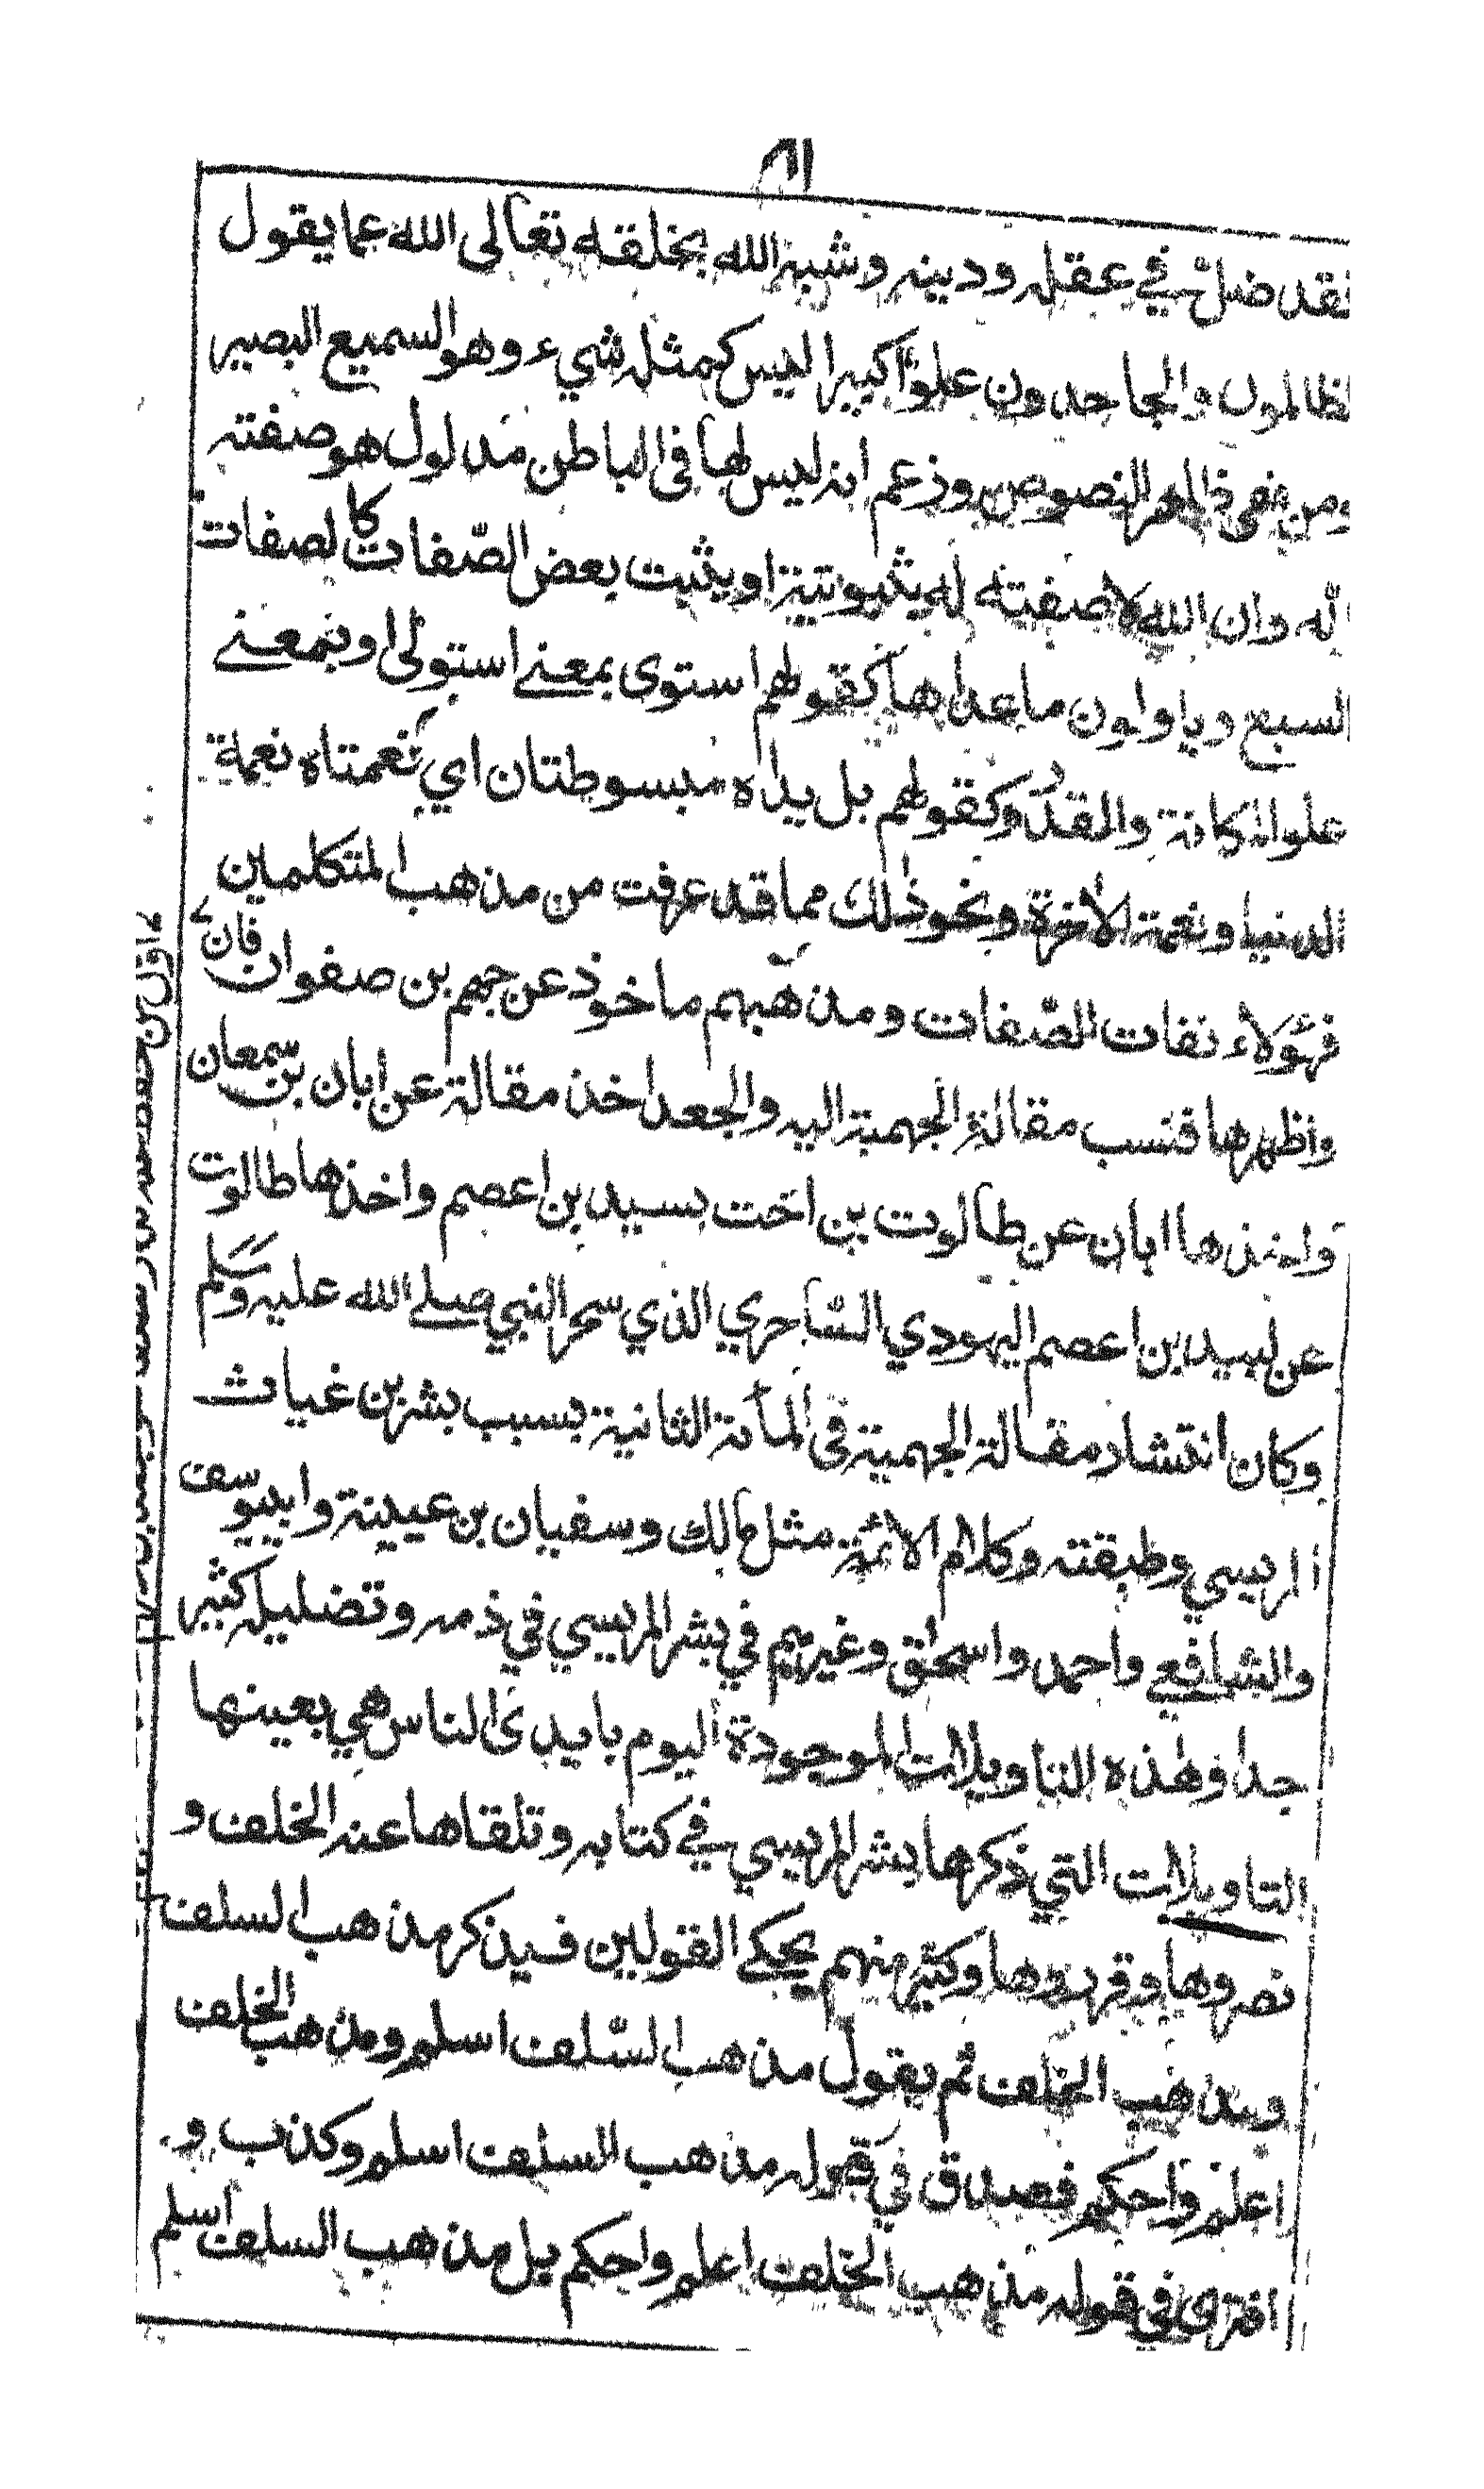 فقد ضل في عقله ودينه وشبه الله بخلقه تعالى الله عما يقول
الظالمون والجاحدون علوّا كبيرا ليس كمثله شيء وهو السميع البصير
ومن نفى ظاهر النصوص وزعم انه ليس لها في الباطن مدلول هو صفته
لله وان الله لا صفته له ثبوتية او يثبت بعض الصّفات كالصفات
السبع وياولون ما عداها كقولهم استوى بمعنى استولى او بمعنى
علو المكانة والقدر وكقولهم بل يداه مبسوطتان اي نعمتاه نعمة
الدنيا ونعمة الأخرة ونحو ذلك مما قد عرفت من مذهب المتكلمين
فهؤلاء نفات الصّفات ومذهبهم ماخوذ عن جهم بن صفوان فان
واظهرها فنسب مقالة الجهمية اليه والجعد اخذ مقالة عن ابان بن سمعان
واخذها ابان عن طالوت بن اخت بسيد بن اعصم واخذها طالوت
عن لبيد بن اعصم اليهودي السّاحري الذي سحر النبي صلى الله عليه وسلم
وكان انتشار مقالة الجهمية في المأة الثانية بسبب بشر بن غياث
المريسي وطبقته وكلام الائمة مثل مالك وسفيان بن عيينة وابيوسف
والشافعي واحمد واسحاق وغيرهم في بشر المريسي في ذمه وتضليله كثير
جدا وهذه التاويلات الموجودة اليوم بايدى الناس هي بعينها
التاويلات التي ذكرها بشر المريسي في كتابه وتلقاها عنه الخلف و
نصروها وقرروها وكثير منهم يحكى القولين فيذكر مذهب السلف
ومذهب الخلف ثم يقول مذهب السّلف اسلم ومذهب الخلف
اعلم واحكم فصدق في قوله مذهب السلف اسلم وكذب و
افترى في قوله مذهب الخلف اعلم واحكم بل مذهب السلف اسلم